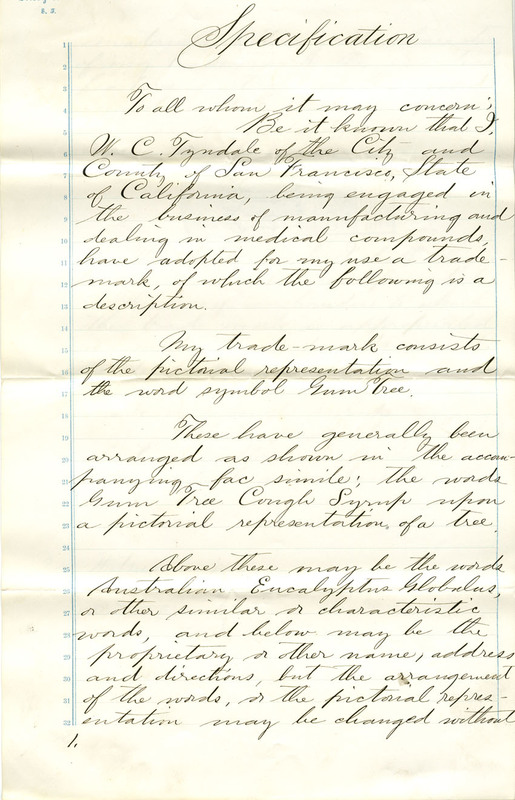 Specification
To all whom it may concern;
Be it known that I,
W. C. Tyndale of the City and
County of San Francisco, State
of California, being engaged in
the business of manufacturing and
dealing in medical compounds,
have adopted for my use a trade-
mark, of which the following is a
description.
My trade-mark consists
of the pictorial representation and
the word symbol Gum Tree.
These have generally been
arranged as shown in the accom-
panying fac simile; the words
Gum Tree Cough Syrup upon
a pictorial representation, of a tree.
Above these may be the words
Australian Eucalyptus Globulus,
or other similar or characteristic
words, and below may be the
proprietary or other name, address
and directions, but the arrangement
of the words, or the pictorial repres-
entation may be changed without
1.